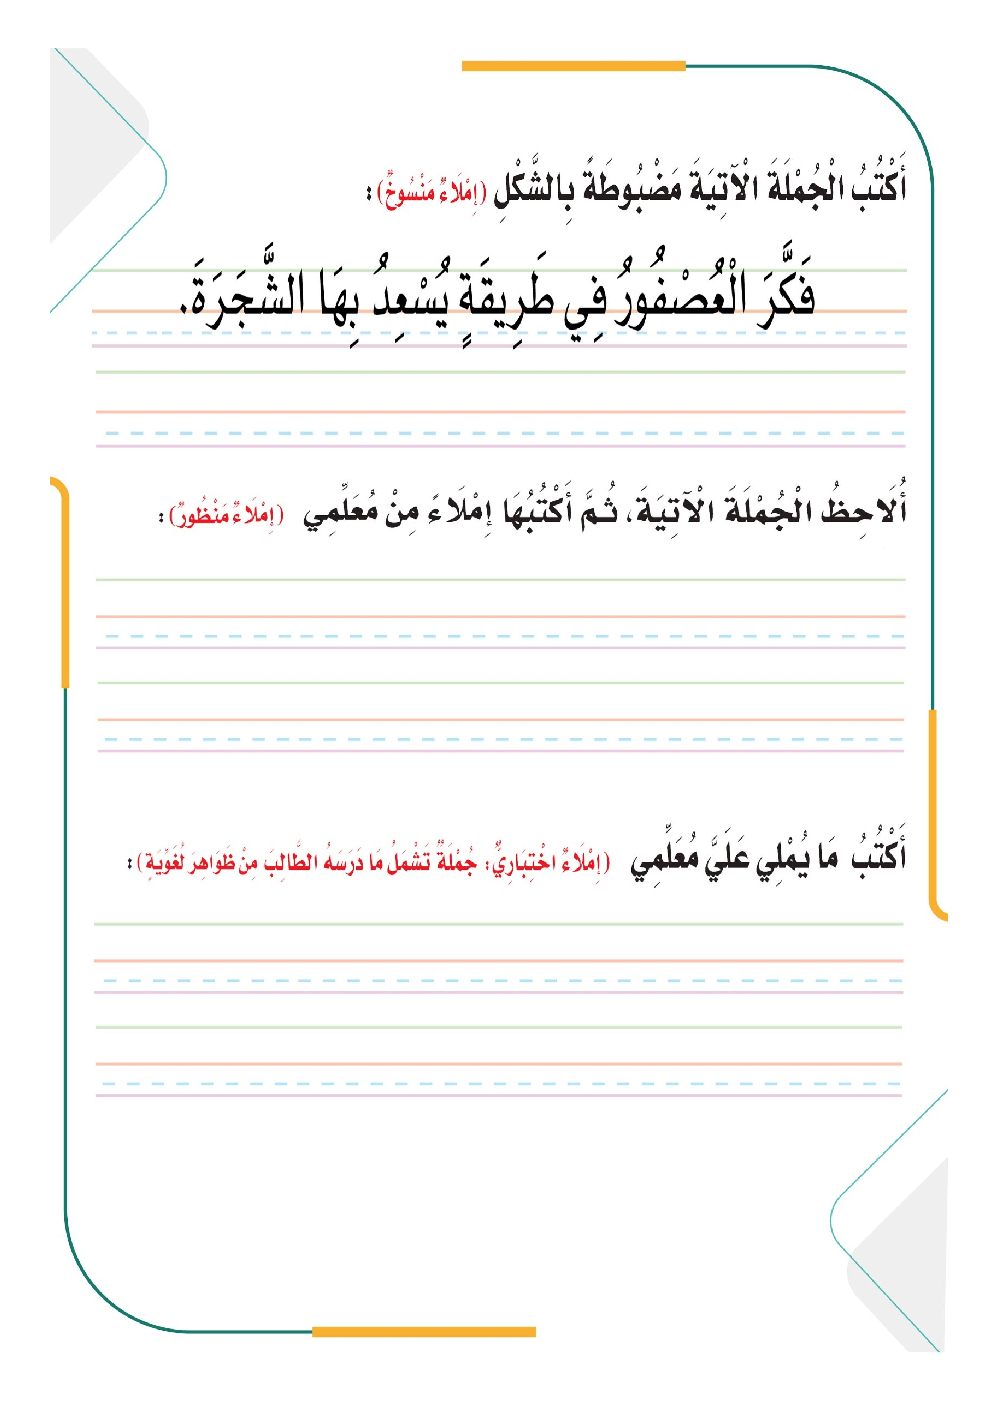 أَكْتُبُ الْجُمْلَةَ الْآتِيَةَ مَضْبُوطَةً بِالشَّكْلِ (إِمْلَاءٌ مَنْسُوخٌ) :
فَكَّرَ الْعُصْفُورُ فِي طَرِيقَةٍ يُسْعِدُ بِهَا الشَّجَرَةَ.
أُلَاحِظُ الْجُمْلَةَ الْآتِيَةَ، ثُمَّ أَكْتُبُهَا إِمْلَاءً مِنْ مُعَلِّمِي (إِمْلَاءٌ مَنْظُورٌ) :
أَكْتُبُ مَا يُمْلِي عَلَيَّ مُعَلِّمِي (إِمْلَاءٌ اخْتِبَارِيٌّ: جُمْلَةٌ تَشْمَلُ مَا دَرَسَهُ الطَّالِبَ مِنْ ظَوَاهِرَ لُغَوِّيَةٍ) :